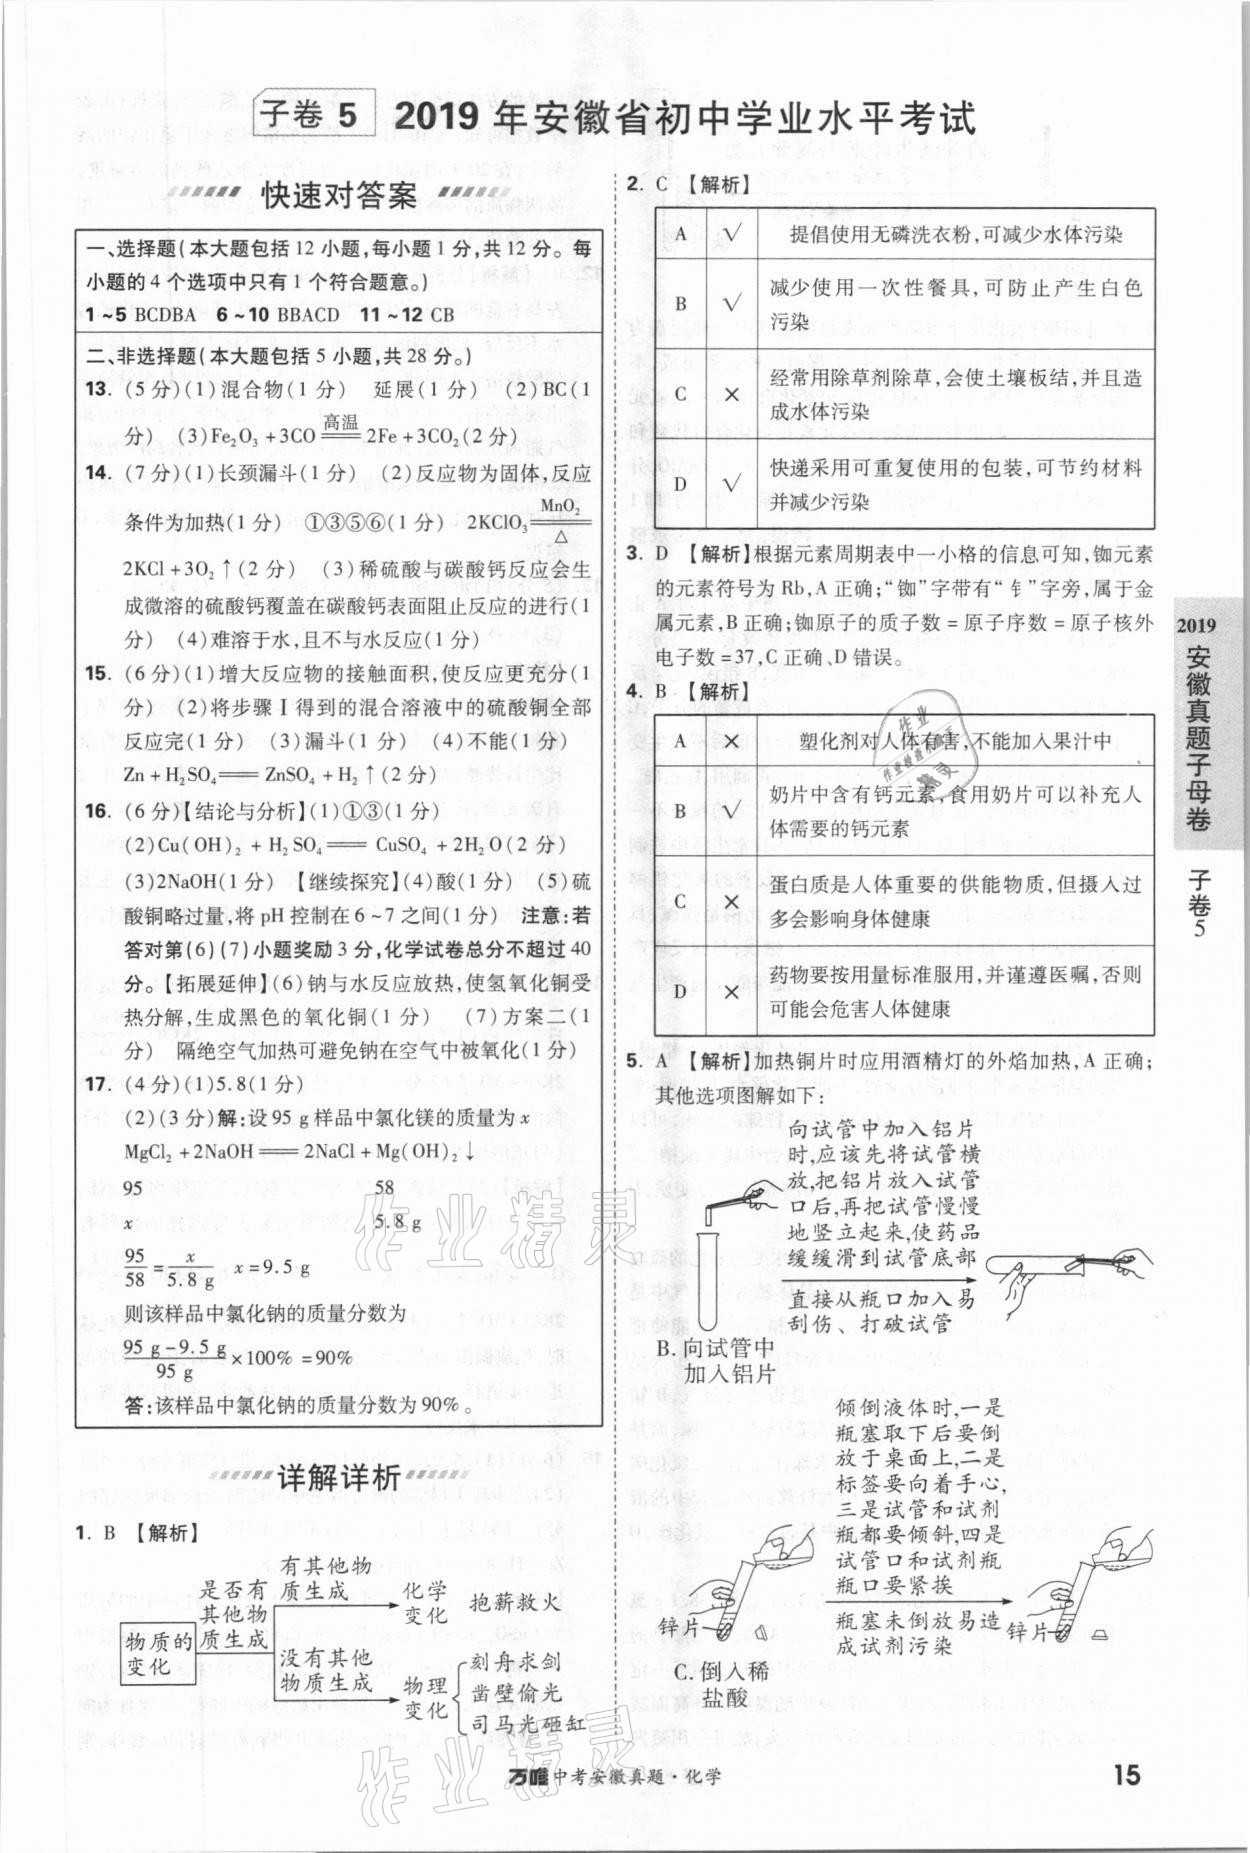 子卷 5 2019 年安徽省初中学业水平考试
快速对答案
一、选择题(本大题包括 12 小题,每小题 1 分,共 12 分。每
小题的 4 个选项中只有 1 个符合题意。)
1~5 BCDBA 6~10 BBACD 11~12 CB
二、非选择题(本大题包括 5 小题,共 28 分。)
13. (5 分)(1)混合物(1 分) 延展(1 分) (2)BC(1
分) (3)Fe₂O₃+3CO 高温══ 2Fe+3CO₂(2 分)
14. (7 分)(1)长颈漏斗(1 分) (2)反应物为固体,反应
条件为加热(1 分) ①③⑤⑥(1 分) 2KClO₃ MnO₂══△
2KCl+3O₂↑(2 分) (3)稀硫酸与碳酸钙反应会生
成微溶的硫酸钙覆盖在碳酸钙表面阻止反应的进行(1
分) (4)难溶于水,且不与水反应(1 分)
15. (6 分)(1)增大反应物的接触面积,使反应更充分(1
分) (2)将步骤Ⅰ得到的混合溶液中的硫酸铜全部
反应完(1 分) (3)漏斗(1 分) (4)不能(1 分)
Zn+H₂SO₄══ZnSO₄+H₂↑(2 分)
16. (6 分)【结论与分析】(1)①③(1 分)
(2)Cu(OH)₂+H₂SO₄══CuSO₄+2H₂O(2 分)
(3)2NaOH(1 分) 【继续探究】(4)酸(1 分) (5)硫
酸铜略过量,将 pH 控制在 6~7 之间(1 分) 注意:若
答对第(6)(7)小题奖励 3 分,化学试卷总分不超过 40
分。【拓展延伸】(6)钠与水反应放热,使氢氧化铜受
热分解,生成黑色的氧化铜(1 分) (7)方案二(1
分) 隔绝空气加热可避免钠在空气中被氧化(1 分)
17. (4 分)(1)5.8(1 分)
(2)(3 分)解:设 95 g 样品中氯化镁的质量为 x
MgCl₂+2NaOH══2NaCl+Mg(OH)₂↓
95 58
x 5.8 g
95/58=x/5.8 g x=9.5 g
则该样品中氯化钠的质量分数为
(95 g-9.5 g)/95 g×100%=90%
答:该样品中氯化钠的质量分数为 90%。
详解详析
1. B 【解析】
物质的
变化
是否有
其他物
质生成
有其他物
质生成
化学
变化
抱薪救火
没有其他
物质生成
物理
变化
刻舟求剑
凿壁偷光
司马光砸缸
2. C 【解析】
A √ 提倡使用无磷洗衣粉,可减少水体污染
B √ 减少使用一次性餐具,可防止产生白色
污染
C × 经常用除草剂除草,会使土壤板结,并且造
成水体污染
D √ 快递采用可重复使用的包装,可节约材料
并减少污染
3. D 【解析】根据元素周期表中一小格的信息可知,铷元素
的元素符号为 Rb,A 正确;“铷”字带有“钅”字旁,属于金
属元素,B 正确;铷原子的质子数=原子序数=原子核外
电子数=37,C 正确、D 错误。
4. B 【解析】
A × 塑化剂对人体有害,不能加入果汁中
B √ 奶片中含有钙元素,食用奶片可以补充人
体需要的钙元素
C × 蛋白质是人体重要的供能物质,但摄入过
多会影响身体健康
D × 药物要按用量标准服用,并谨遵医嘱,否则
可能会危害人体健康
5. A 【解析】加热铜片时应用酒精灯的外焰加热,A 正确;
其他选项图解如下:
向试管中加入铝片
时,应该先将试管横
放,把铝片放入试管
口后,再把试管慢慢
地竖立起来,使药品
缓缓滑到试管底部
直接从瓶口加入易
刮伤、打破试管
B. 向试管中
加入铝片
倾倒液体时,一是
瓶塞取下后要倒
放于桌面上,二是
标签要向着手心,
三是试管和试剂
瓶都要倾斜,四是
试管口和试剂瓶
瓶口要紧挨
瓶塞未倒放易造
成试剂污染
锌片
锌片
C. 倒入稀
盐酸
2019
安徽真题子母卷
子卷5
作业精灵
作业精灵
万唯中考安徽真题·化学
15